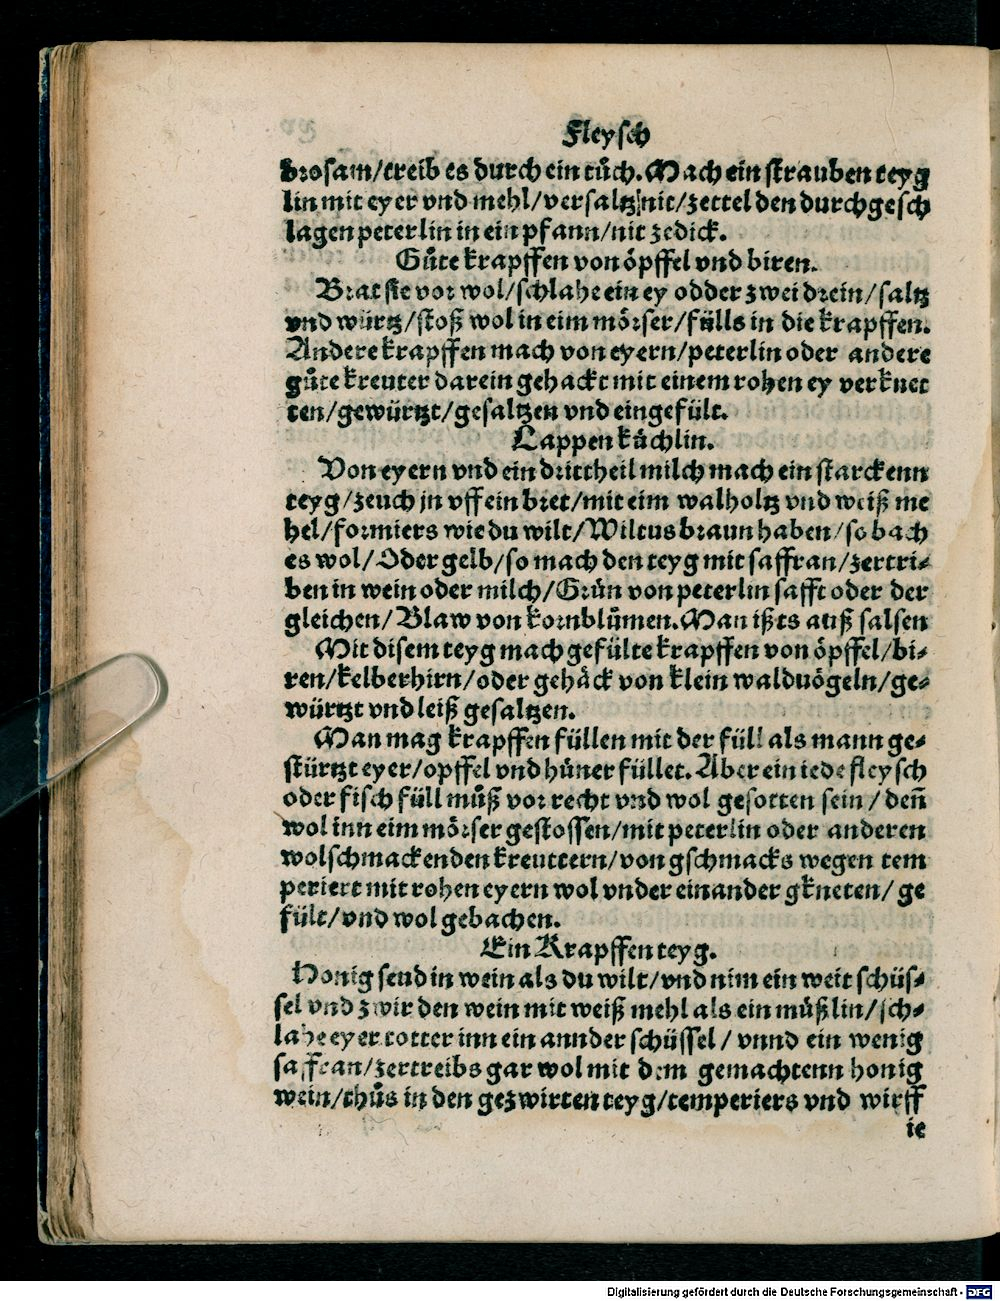 Fleysch
brosam/treib es durch ein tůch. Mach ein strauben teyg
lin mit eyer vnd mehl/versaltz nit/zettel den durchgesch
lagen peterlin in ein pfann/nit zedick.
Gůte krapffen von öpffel vnd biren.
Brat sie vor wol/schlahe ein ey odder zwei drein/saltz
vnd würtz/stoß wol in eim mörser/fülls in die krapffen.
Andere krapffen mach von eyern/peterlin oder andere
gůte kreuter darein gehackt mit einem rohen ey verknet
ten/gewürtzt/gesaltzen vnd eingefült.
Lappen kůchlin.
Von eyern vnd ein drittheil milch mach ein starckenn
teyg/zeuch jn vff ein bret/mit eim walholtz vnd weiß me
hel/formiers wie du wilt/Wiltus braun haben/so bach
es wol/Oder gelb/so mach den teyg mit saffran/zertri⸗
ben in wein oder milch/Grün von peterlin safft oder der
gleichen/Blaw von kornblůmen. Man ißts auß salsen
Mit disem teyg mach gefülte krapffen von öpffel/bi⸗
ren/kelberhirn/oder gehäck von klein waldvögeln/ge⸗
würtzt vnd leiß gesaltzen.
Man mag krapffen füllen mit der füll als mann ge⸗
stürtzt eyer/opffel vnd hüner füllet. Aber ein iede fleysch
oder fisch füll můß vor recht vnd wol gesotten sein/deñ
wol inn eim mörser gestossen/mit peterlin oder anderen
wolschmackenden kreuttern/von gschmacks wegen tem
periert mit rohen eyern wol vnder einander gkneten/ge
fült/vnd wol gebachen.
Ein Krapffen teyg.
Honig seud in wein als du wilt/vnd nim ein weit schüs⸗
sel vnd zwir den wein mit weiß mehl als ein můßlin/sch⸗
lahe eyer totter inn ein annder schüssel/vnnd ein wenig
saffran/zertreibs gar wol mit dem gemachtenn honig
wein/thůs in den gezwirten teyg/temperiers vnd wirff
ie
Digitalisierung gefördert durch die Deutsche Forschungsgemeinschaft - DFG